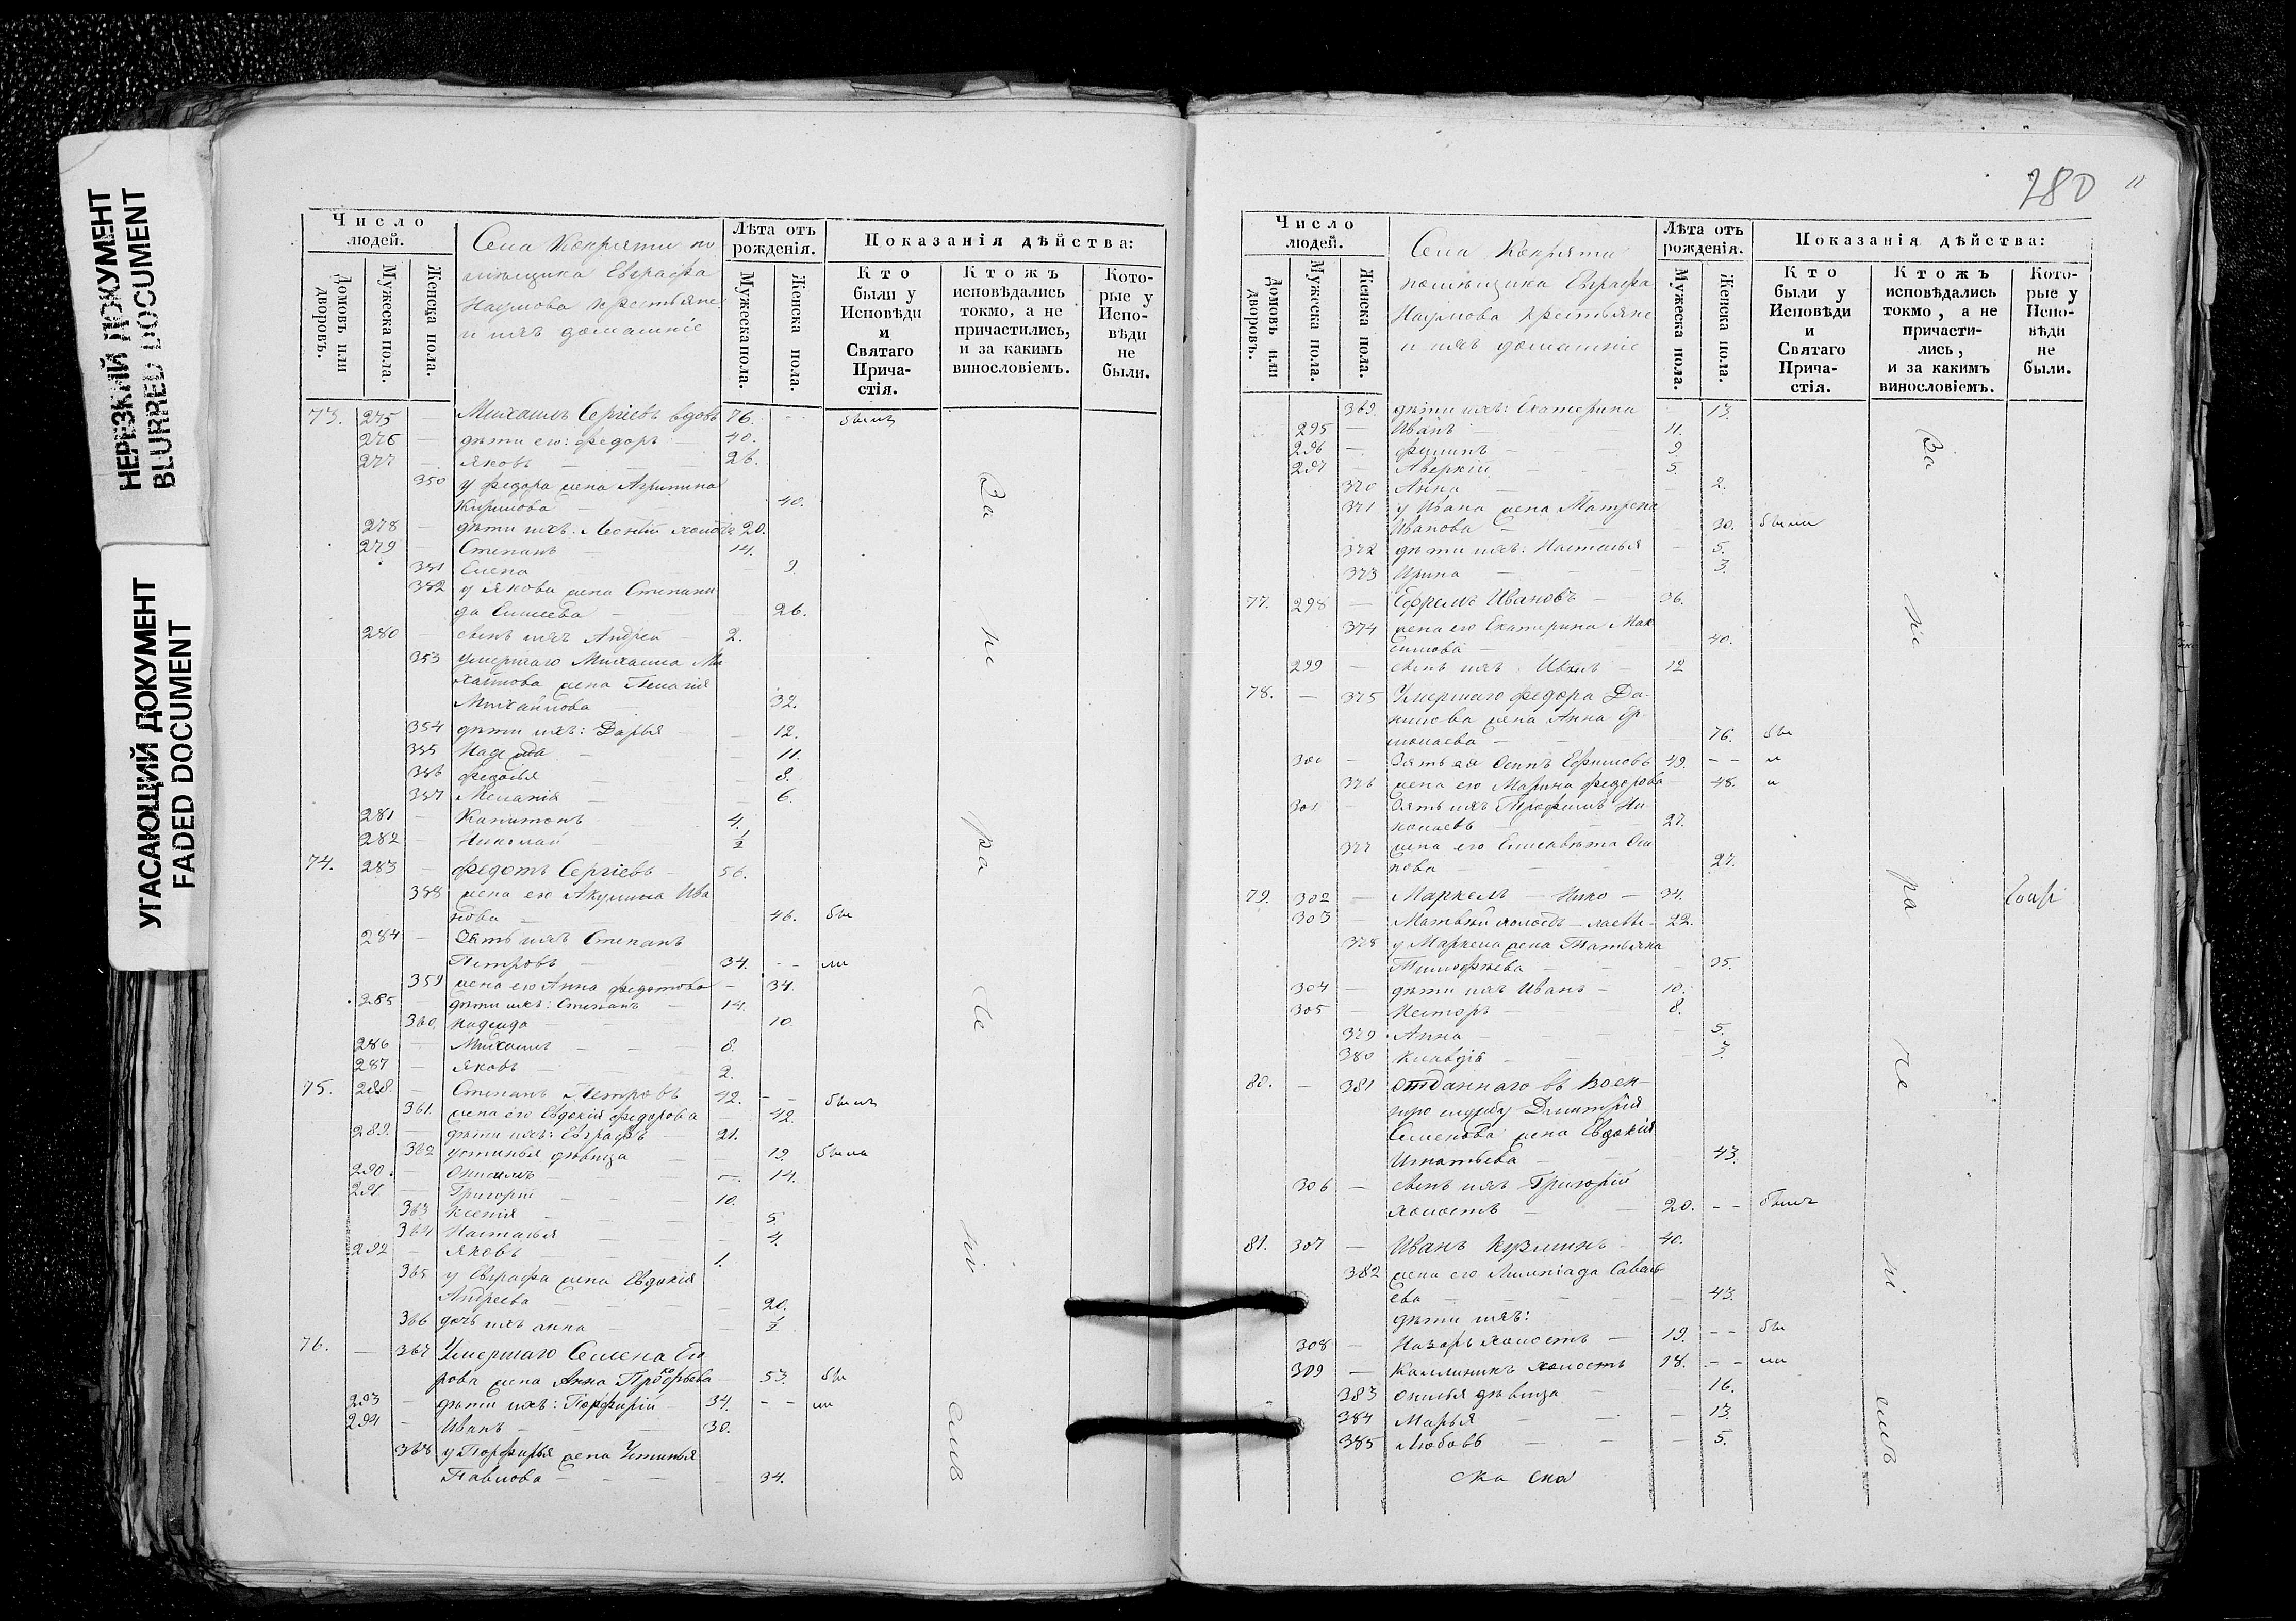 НЕРЕЗКИЙ ДОКУМЕНТ
BLURED DOCUMENT
УГАСАЮЩИЙ ДОКУМЕНТ
FADED DOCUMENT
Число людей.
Домовъ или дворовъ.
Мужеска пола.
Женска пола.
Села Копряти по
мѣщика Евграфа
Наумова крестьяне
и ихъ домашніе
Лѣта отъ рожденія.
Мужеска пола.
Женска пола.
Показанія дѣйства:
Кто были у Исповѣди и Святаго Прича-стія.
Ктожъ исповѣдались токмо, а не причастились, и за какимъ винословіемъ.
Кото-рые у Испо-вѣди не были.
73. 275 — Михаилъ Сергіевъ вдовъ 76. — былъ
276 — дѣти его: Федоръ — 40.
277 — Яковъ — — 26.
350 у Федора жена Агрипина
Кирилова — 40.
278 — дѣти ихъ: Леонтій холостъ 20.
279 — Степанъ — 14.
351 Елена — 9
352 у Якова жена Степани
да Елисеева — — 26.
280 — сынъ ихъ Андрей — 2.
353 умершаго Михаила Ми
хайлова жена Пелагія
Михайлова 32.
354 дѣти ихъ: Дарья — — 12.
355 Надежда — 11.
356 Федосья — 8.
357 Меланія — 6.
281 — Капитонъ 4.
282 — Николай 1/2
74. 283 — Федотъ Сергіевъ — 56.
358 жена его Акулина Ива
нова — 46. бы
284 — Зять ихъ Степанъ
Петровъ — 34. - - ли
359 жена его Анна Федотова — 34.
285 — дѣти ихъ: Степанъ — 14.
360 Надежда — 10
286 — Михаилъ — — 8.
287 — Яковъ — 2.
75. 288. — Степанъ Петровъ 42. — — былъ
361. жена его Евдокія Федорова — 42.
289. — дѣти ихъ: Евграфъ — 21.
362 Устинья дѣвица — — 19. была
290. — Онисимъ — — 14.
291. — Григорій — — 10.
363 Ксенія — 5
364 Настасья — 4.
292 — Яковъ 1.
365 у Евграфа жена Евдокія
Андреева — — 20.
366 дочь ихъ Анна — 1/2
76. — 367 Умершаго Семена Его
рова жена Анна Прокофьева — 53. бы
293 — дѣти ихъ: Порфирій — 34. - - ли
294 — Иванъ — — 30.
368 у Порфирья жена Устинья
Павлова — — — 34.
За не ра че ні емъ
280
11
Число людей.
Домовъ или дворовъ.
Мужеска пола.
Женска пола.
Села Копряти
помѣщика Евграфа
Наумова крестьяне
и ихъ домашніе
Лѣта отъ рожденія.
Мужеска пола.
Женска пола.
Показанія дѣйства:
Кто были у Исповѣди и Святаго Прича-стія.
Ктожъ исповѣдались токмо, а не причасти-лись, и за какимъ винословіемъ.
Кото-рые у Испо-вѣди не были.
369. дѣти ихъ: Екатерина 13.
295 — Иванъ — 11.
296 — Филипъ — 9.
297 — Аверкій — 5.
370 Анна — 2.
371 у Ивана жена Матрена
Иванова — 30. были
372 дѣти ихъ: Настасья — 5.
373 Ирина — — 3.
77. 298 — Ефремъ Ивановъ — 36.
374 жена его Екатерина Мак
симова — 40.
299 — сынъ ихъ Иванъ — 12
78. — 375 Умершаго Федора Да-
нилова жена Анна Ер-
молаева — 76. бы
300 — Зять ея Осипъ Ефимовъ 49. — — л
376 жена его Марина Федорова 48. и
301 — Зять ихъ Трофимъ Ни-
колаевъ — 27.
377 жена его Елисавета Оси
пова — 27.
79. 302 — Маркелъ — Нико — 34.
303 — Матвѣй холостъ — лаевы — 22.
378 у Маркела жена Татьяна
Тимофѣева — 35.
304 — дѣти ихъ Иванъ — 10.
305 — Несторъ — 8.
379 Анна — 5.
380 Клавдія — 3.
80. — 381 отданнаго въ воен-
ную службу Дмитрія
Семенова жена Евдокія
Игнатьева — 43.
306 — сынъ ихъ Григорій
холостъ — 20. - - былъ
81. 307 — Иванъ Кузминъ 40.
382 жена его Лимпіада Савель
ева — — 43.
дѣти ихъ:
308 — Назаръ холостъ — 19. - - бы
309 — Каллиникъ холостъ 18. - - ли
383 дѣвица — 16.
384 Марья — — 13.
385 Любовь — — 5.
За не ра че ні емъ